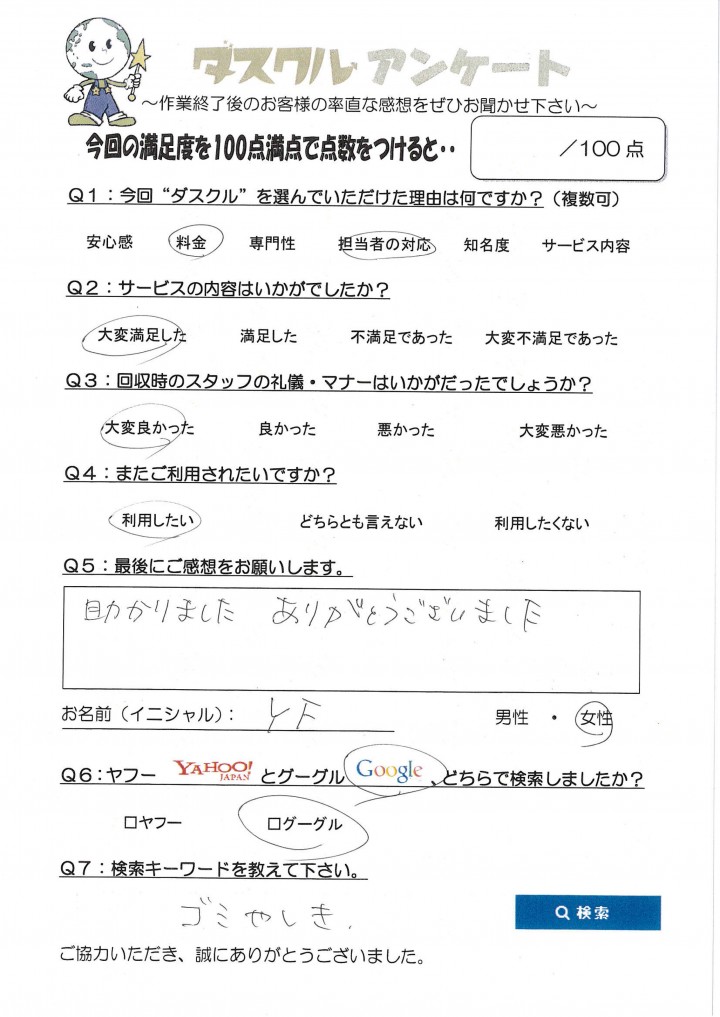 ダスクル アンケート
～作業終了後のお客様の率直な感想をぜひお聞かせ下さい～
今回の満足度を100点満点で点数をつけると・・ ／100点
Q1：今回“ダスクル”を選んでいただけた理由は何ですか？（複数可）
安心感 料金 専門性 担当者の対応 知名度 サービス内容
Q2：サービスの内容はいかがでしたか？
大変満足した 満足した 不満足であった 大変不満足であった
Q3：回収時のスタッフの礼儀・マナーはいかがだったでしょうか？
大変良かった 良かった 悪かった 大変悪かった
Q4：またご利用されたいですか？
利用したい どちらとも言えない 利用したくない
Q5：最後にご感想をお願いします。
助かりました ありがとうございました
お名前（イニシャル）： YF 男性 ・ 女性
Q6：ヤフー YAHOO! JAPAN とグーグル Google 、どちらで検索しましたか？
□ヤフー □グーグル
Q7：検索キーワードを教えて下さい。
ゴミやしき. 検索
ご協力いただき、誠にありがとうございました。